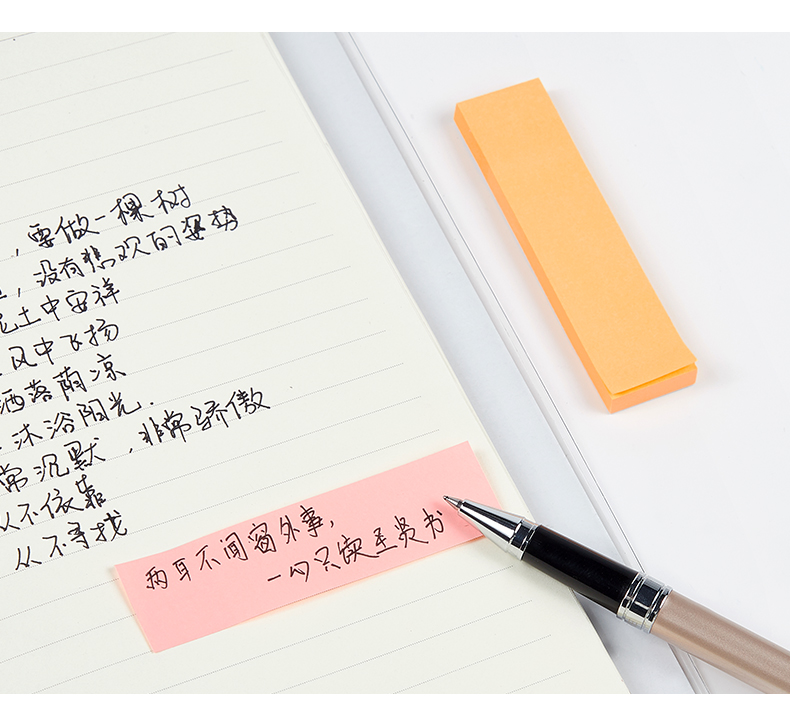 ，要做一棵树
，没有悲欢的姿势
土中安祥
风中飞扬
洒落荫凉
沐浴阳光.
常沉默，非常骄傲
从不依靠
从不寻找
两耳不闻窗外事，
一心只读圣贤书